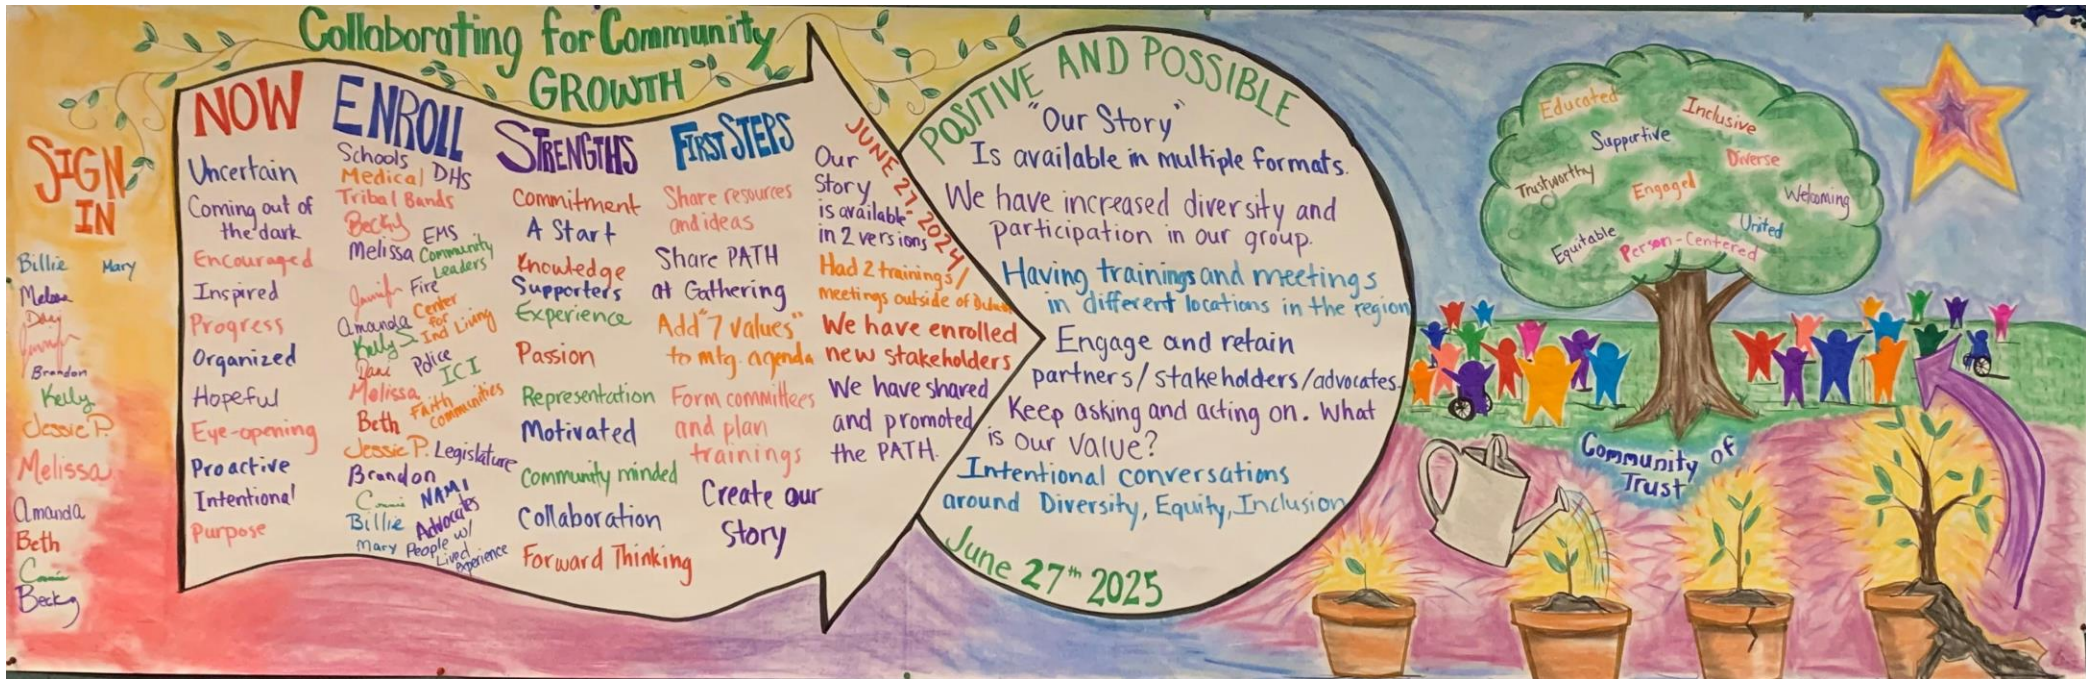 Collaborating for Community
GROWTH
SIGN
IN
Billie
Mary
Melissa
Dani
Jennifer
Brandon
Kelly
Jessie P.
Melissa
Amanda
Beth
Connie
Becky
NOW
Uncertain
Coming out of
the dark
Encouraged
Inspired
Progress
Organized
Hopeful
Eye-opening
Proactive
Intentional
Purpose
ENROLL
Schools
Medical DHS
Tribal Bands
Becky
EMS
Melissa Community
Leaders
Jennifer Fire
Amanda Center
for
Kelly S. Ind Living
Dani Police
ICI
Melissa
Beth Faith
communities
Jessie P. Legislature
Brandon
Connie NAMI
Billie Advocates
Mary People w/
Lived
experience
STRENGTHS
Commitment
A Start
Knowledge
Supporters
Experience
Passion
Representation
Motivated
Community minded
Collaboration
Forward Thinking
FIRST STEPS
Share resources
and ideas
Share PATH
at Gathering
Add "7 values"
to mtg. agenda
Form committees
and plan
trainings
Create our
Story
JUNE 27, 2024
Our
Story
is available
in 2 versions
Had 2 trainings/
meetings outside of Duluth
We have enrolled
new stakeholders
We have shared
and promoted
the PATH.
POSITIVE AND POSSIBLE
"Our Story"
Is available in multiple formats.
We have increased diversity and
participation in our group.
Having trainings and meetings
in different locations in the region
Engage and retain
partners/stakeholders/advocates.
Keep asking and acting on. What
is our value?
Intentional conversations
around Diversity, Equity, Inclusion
June 27th 2025
Educated
Inclusive
Supportive
Diverse
Trustworthy
Engaged
Welcoming
United
Equitable
Person-Centered
Community of
Trust